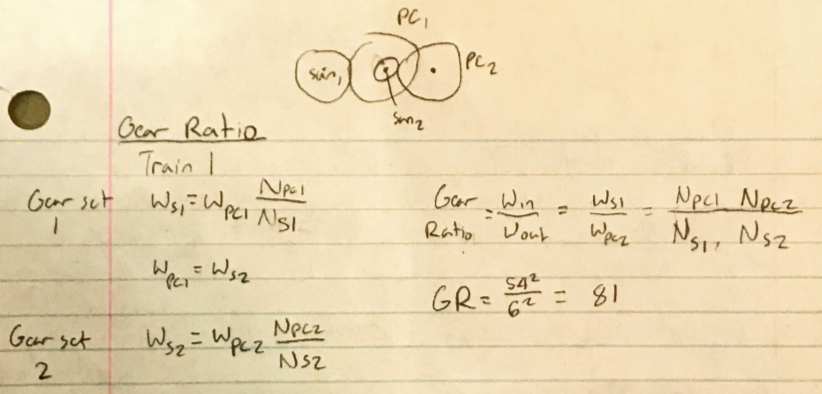 PC1
sun1
PC2
sun2
Gear Ratio
Train 1
Gear set 1
Ws1 = WPC1 NPC1/NS1
WPC1 = WS2
Gear set 2
WS2 = WPC2 NPC2/NS2
Gear Ratio = Win/Wout = WS1/WPC2 = NPC1 NPC2/NS1, NS2
GR = 54²/6² = 81